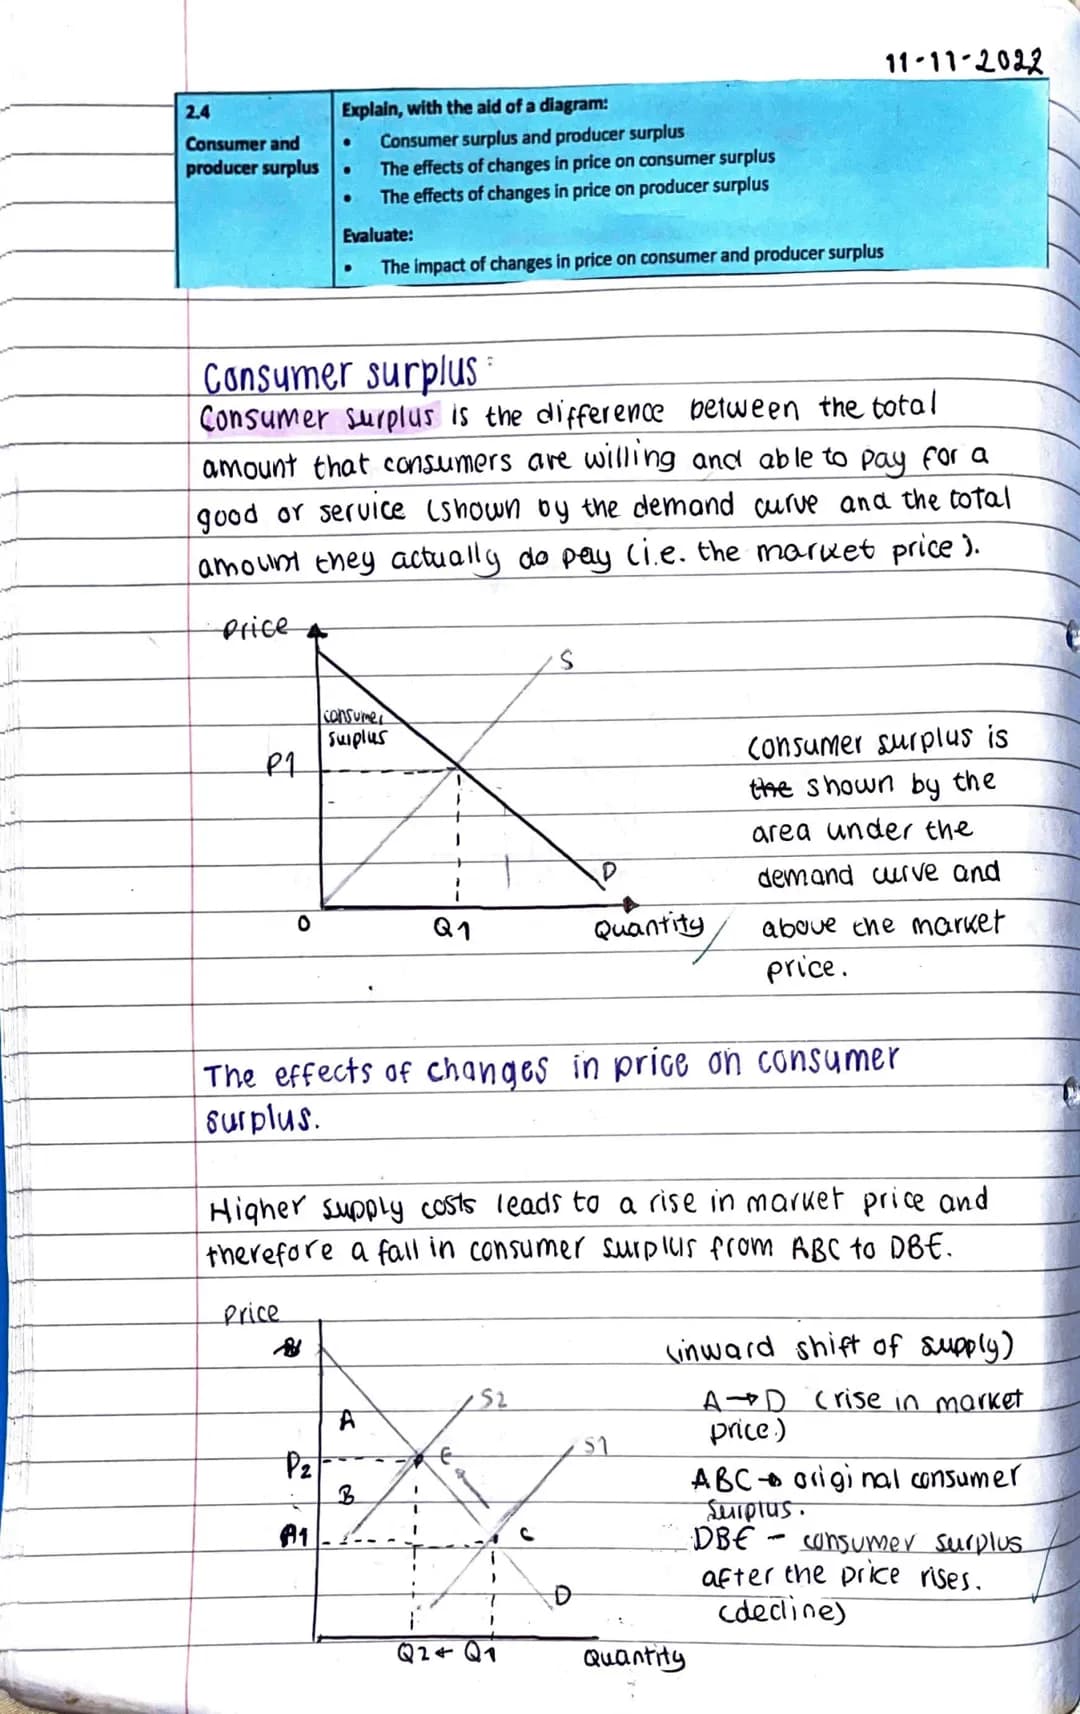 11-11-2022
2.4
Consumer and
producer surplus
Explain, with the aid of a diagram:
• Consumer surplus and producer surplus
• The effects of changes in price on consumer surplus
• The effects of changes in price on producer surplus
Evaluate:
• The impact of changes in price on consumer and producer surplus
Consumer surplus:
Consumer surplus is the difference between the total
amount that consumers are willing and able to pay for a
good or service (shown by the demand curve and the total
amount they actually do pay (i.e. the market price).
price
S
consumer
surplus
P1
D
0
Q1
Quantity
consumer surplus is
the shown by the
area under the
demand curve and
above the market
price.
The effects of changes in price on consumer
surplus.
Higher supply costs leads to a rise in market price and
therefore a fall in consumer surplus from ABC to DBE.
price
S2
A
S1
P2
E
B
C
D
Q2 ← Q1
Quantity
(inward shift of supply)
A→D (rise in market
price.)
ABC → original consumer
surplus.
DBE - consumer surplus
after the price rises.
(decline)